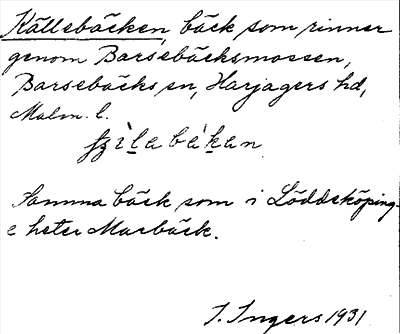 Källebäcken, bäck som rinner
genom Barsebäcksmossen,
Barsebäcks sn, Harjagers hd,
Malm. l.
Samma bäck som i Löddeköping-
e heter Marbäck.
I. Ingers 1931